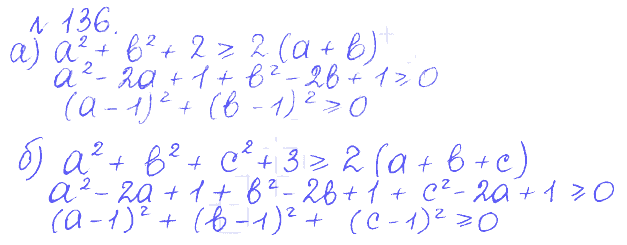 № 136.
а) a² + b² + 2 ≥ 2 (a + b)
a² - 2a + 1 + b² - 2b + 1 ≥ 0
(a - 1)² + (b - 1)² ≥ 0
б) a² + b² + c² + 3 ≥ 2 (a + b + c)
a² - 2a + 1 + b² - 2b + 1 + c² - 2a + 1 ≥ 0
(a - 1)² + (b - 1)² + (c - 1)² ≥ 0